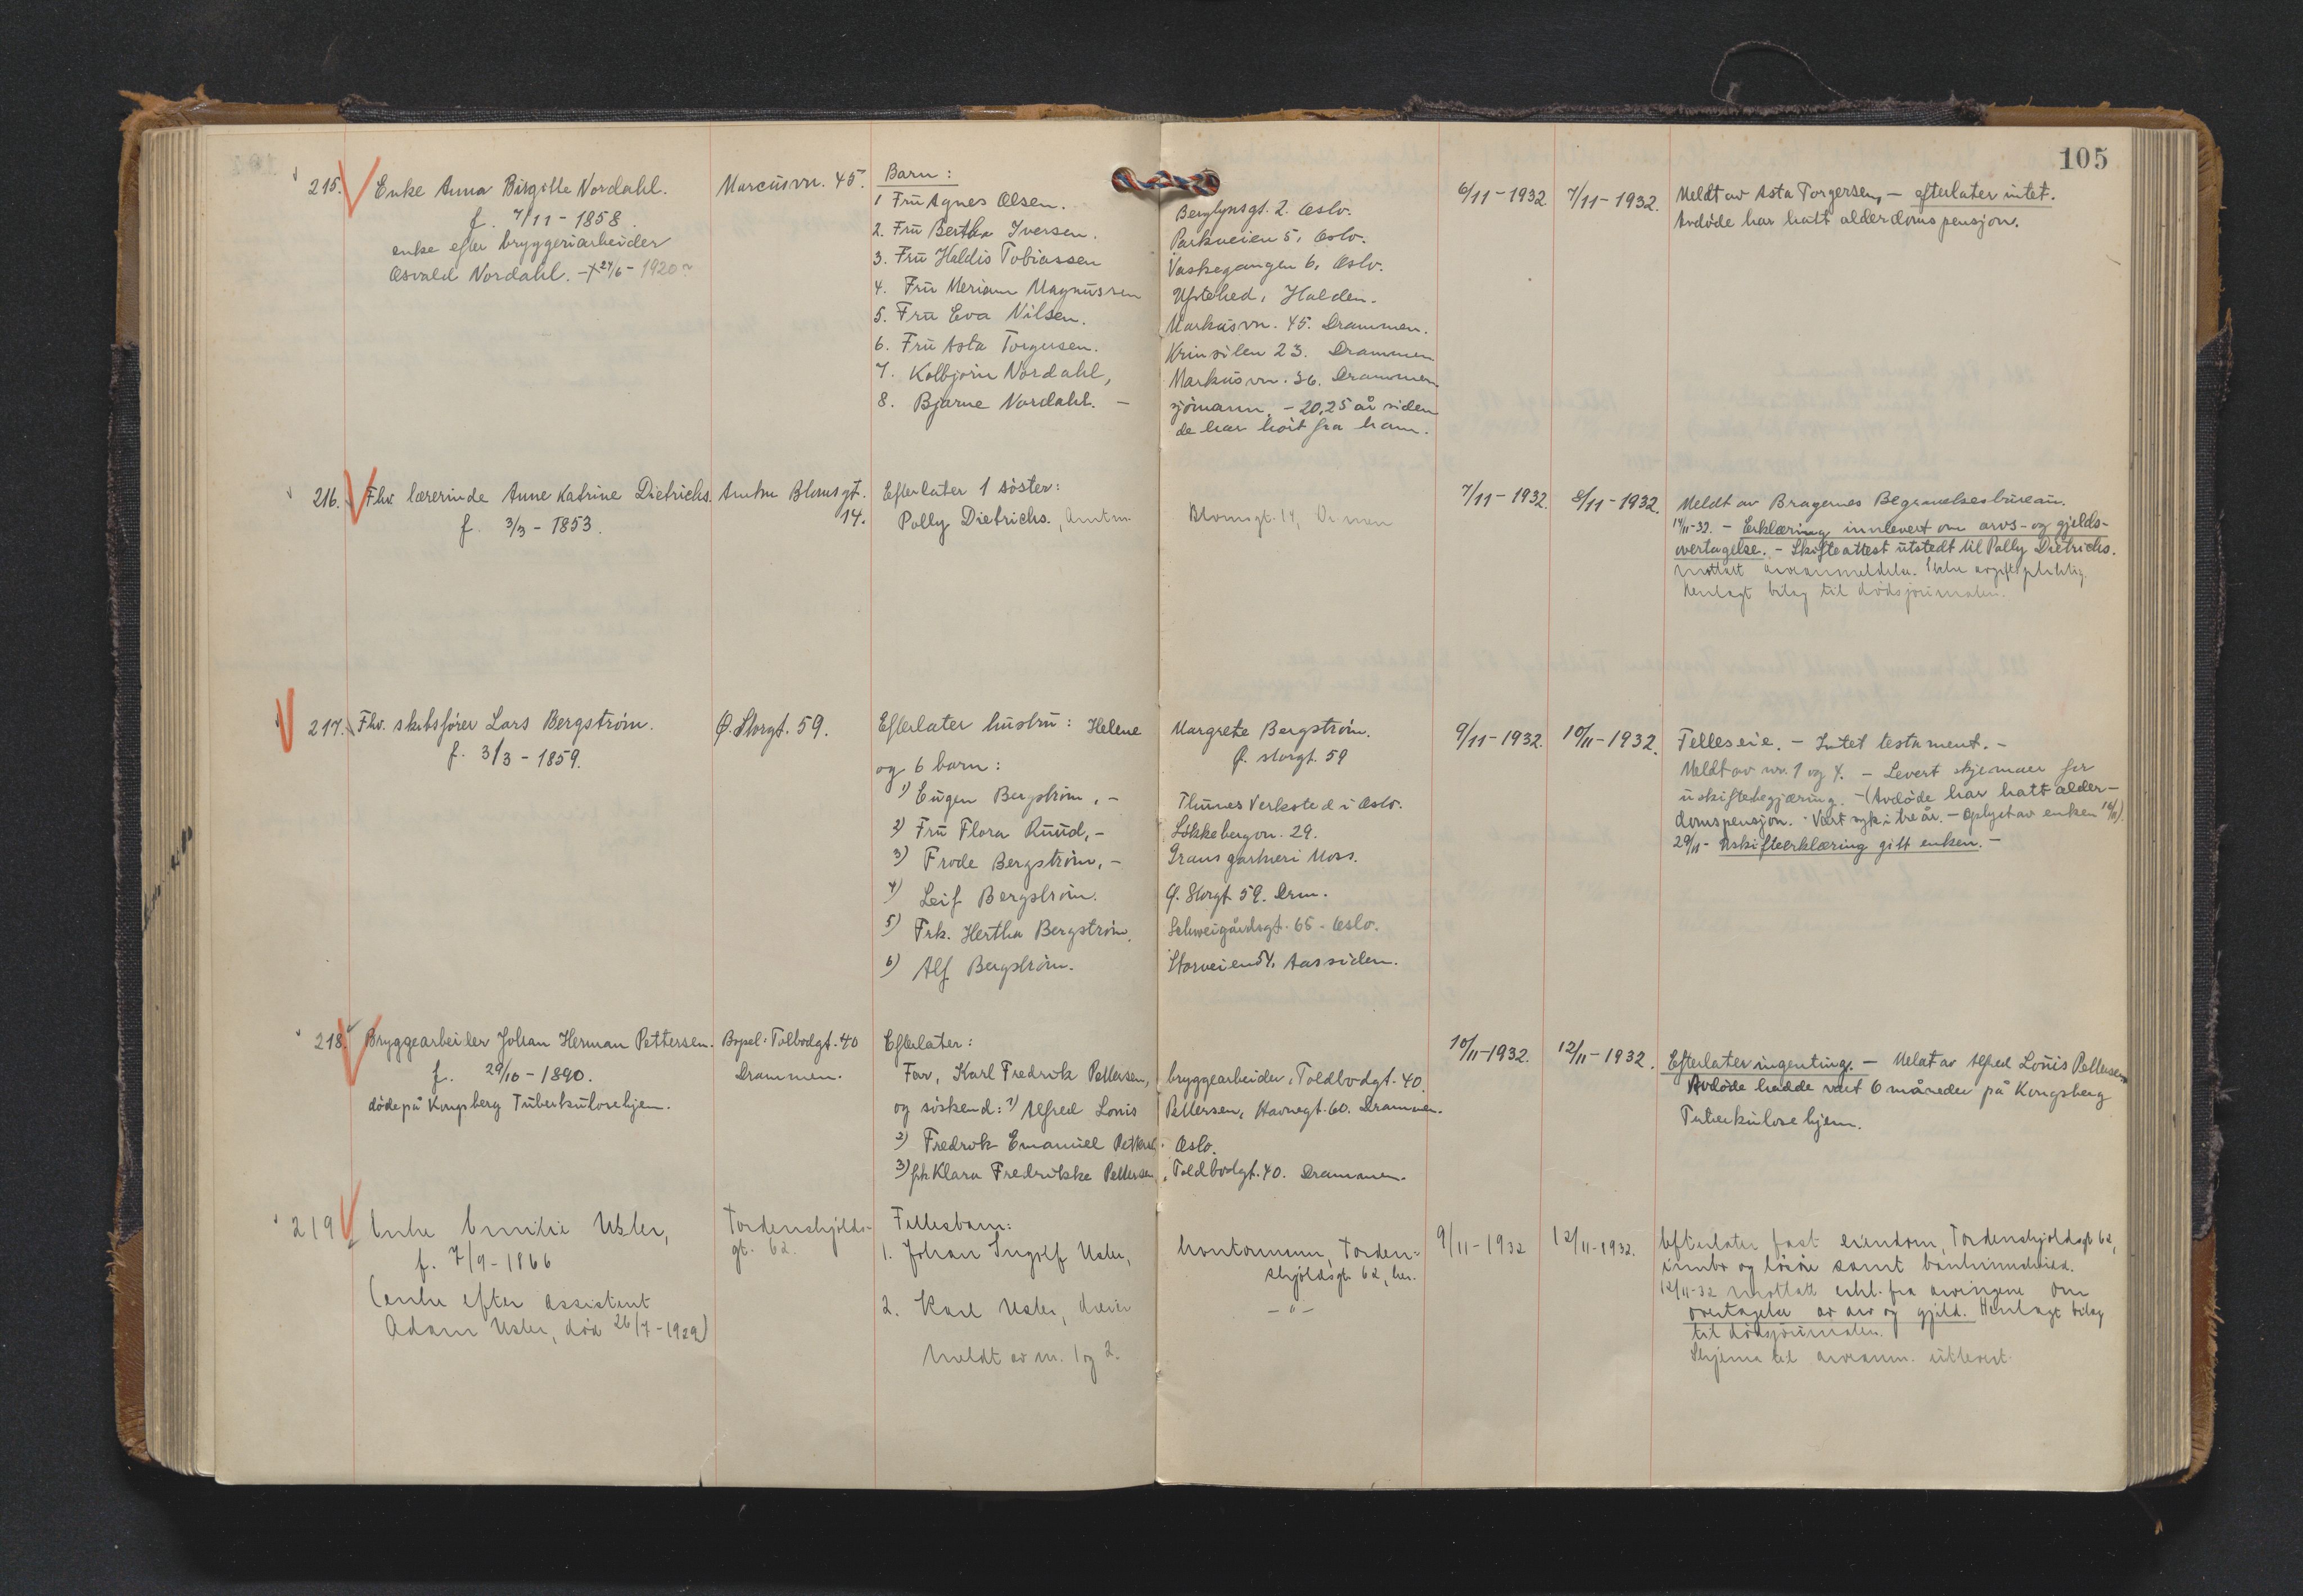 105
215. Enke Anna Birgitte Nordahl.
f. 7/11 - 1858.
enke efter bryggeriarbeider
Osvald Nordahl. - + 24/6 - 1920?
Marcusvn. 45.
Barn:
1 Fru Agnes Olsen. Berglynsgt. 2. Oslo.
2. Fru Bertha Iversen. Parkveien 5, Oslo.
3. Fru Haldis Tobiassen Vaskegangen 6, Oslo.
4. Fru Meriam Magnussen Halden.
5. Fru Eva Nilsen. Markusvn. 45. Drammen.
6. Fru Asta Torgersen. 23. Drammen
7. Kolbjørn Nordahl, Markusvn. 36. Drammen
8. Bjarne Nordahl. - sjömann. - 20,25 år siden
de har hört fra ham.
6/11 - 1932. 7/11 - 1932.
Meldt av Asta Torgersen, - efterlater intet.
Avdöde har hatt alderdomspensjon.
216. Fhv. lærerinde Anne Katrine Dietrichs.
f. 3/3 - 1853.
Amtm Blomsgt.
14.
Efterlater 1 söster:
Polly Dietrichs., Amtm. Blomsgt. 14, Drmen
7/11 - 1932. 8/11 - 1932.
Meldt av Bragernes Begravelsesbureau.
14/11-32. - Erklæring innlevert om arvs- og gjelds-
overtagelse. - Skifteattest utstedt til Polly Dietrichs.
Mottatt arveanmeldelse. Ikke avgiftspliktig.
Henlagt bilag til dödsjournalen.
217. Fhv. skibsfører Lars Bergström.
f. 3/3 - 1859.
Ø. Storgt. 59.
Efterlater hustru: Helene Margrete Bergström.
Ø. Storgt. 59
og 6 barn:
1) Eugen Bergström, - Thunes Verksted i Oslo.
2) Fru Flora Ruud, - Løkkebergvn. 29.
3) Frode Bergström, - Grans gartneri Moss.
4) Leif Bergström. Ø. Storgt. 59. Drm.
5) Frk. Hertha Bergström. Schweigårdsgt. 65 - Oslo.
6) Alf Bergström. Storveien 54, Aassiden.
9/11 - 1932. 10/11 - 1932.
Felleseie. - Intet testament. -
Meldt av nr. 1 og 4. - Levert skjemaer for
uskiftebegjæring. - (Avdöde har hatt alder-
domspensjon. - Vært syk i tre år. - Oplyst av enken 16/11).
29/11 - Uskifteerklæring gitt enken. -
218. Bryggearbeider Johan Herman Pettersen.
f. 29/10 - 1890.
döde på Kongsberg Tuberkulosehjem.
Bopel: Tolbodgt. 40
Drammen.
Efterlater:
Far, Karl Fredrik Pettersen, bryggearbeider, Toldbodgt. 40.
og söskend: 1) Alfred Louis Pettersen, Havnegt. 60. Drammen.
2) Fredrik Emanuel Pettersen. Oslo.
3) frk Klara Fredrikke Pettersen, Toldbodgt. 40. Drammen.
10/11 - 1932. 12/11 - 1932.
Efterlater ingenting. - Meldt av Alfred Louis Pettersen
Avdöde hadde vært 6 måneder på Kongsberg
Tuberkulosehjem.
219 Enke Emilie Usler,
f. 7/9 - 1866
(enke efter assistent
Adam Usler, död 26/7 - 1929)
Tordenskjolds-
gt. 62.
Fellesbarn:
1. Johan Ingolf Usler, kontormann, Torden-
skjoldsgt. 62, her.
2. Karl Usler, - " -
Meldt av nr. 1 og 2.
9/11 - 1932 12/11 - 1932.
Efterlater fast eiendom, Tordenskjoldsgt 62,
innbo og lösöre samt bankinnskudd.
12/11-32 mottatt erkl. fra arvingene om
overtagelse av arv og gjeld. Henlagt bilag
til dödsjournalen.
Skjema til arveanm. utlevert.